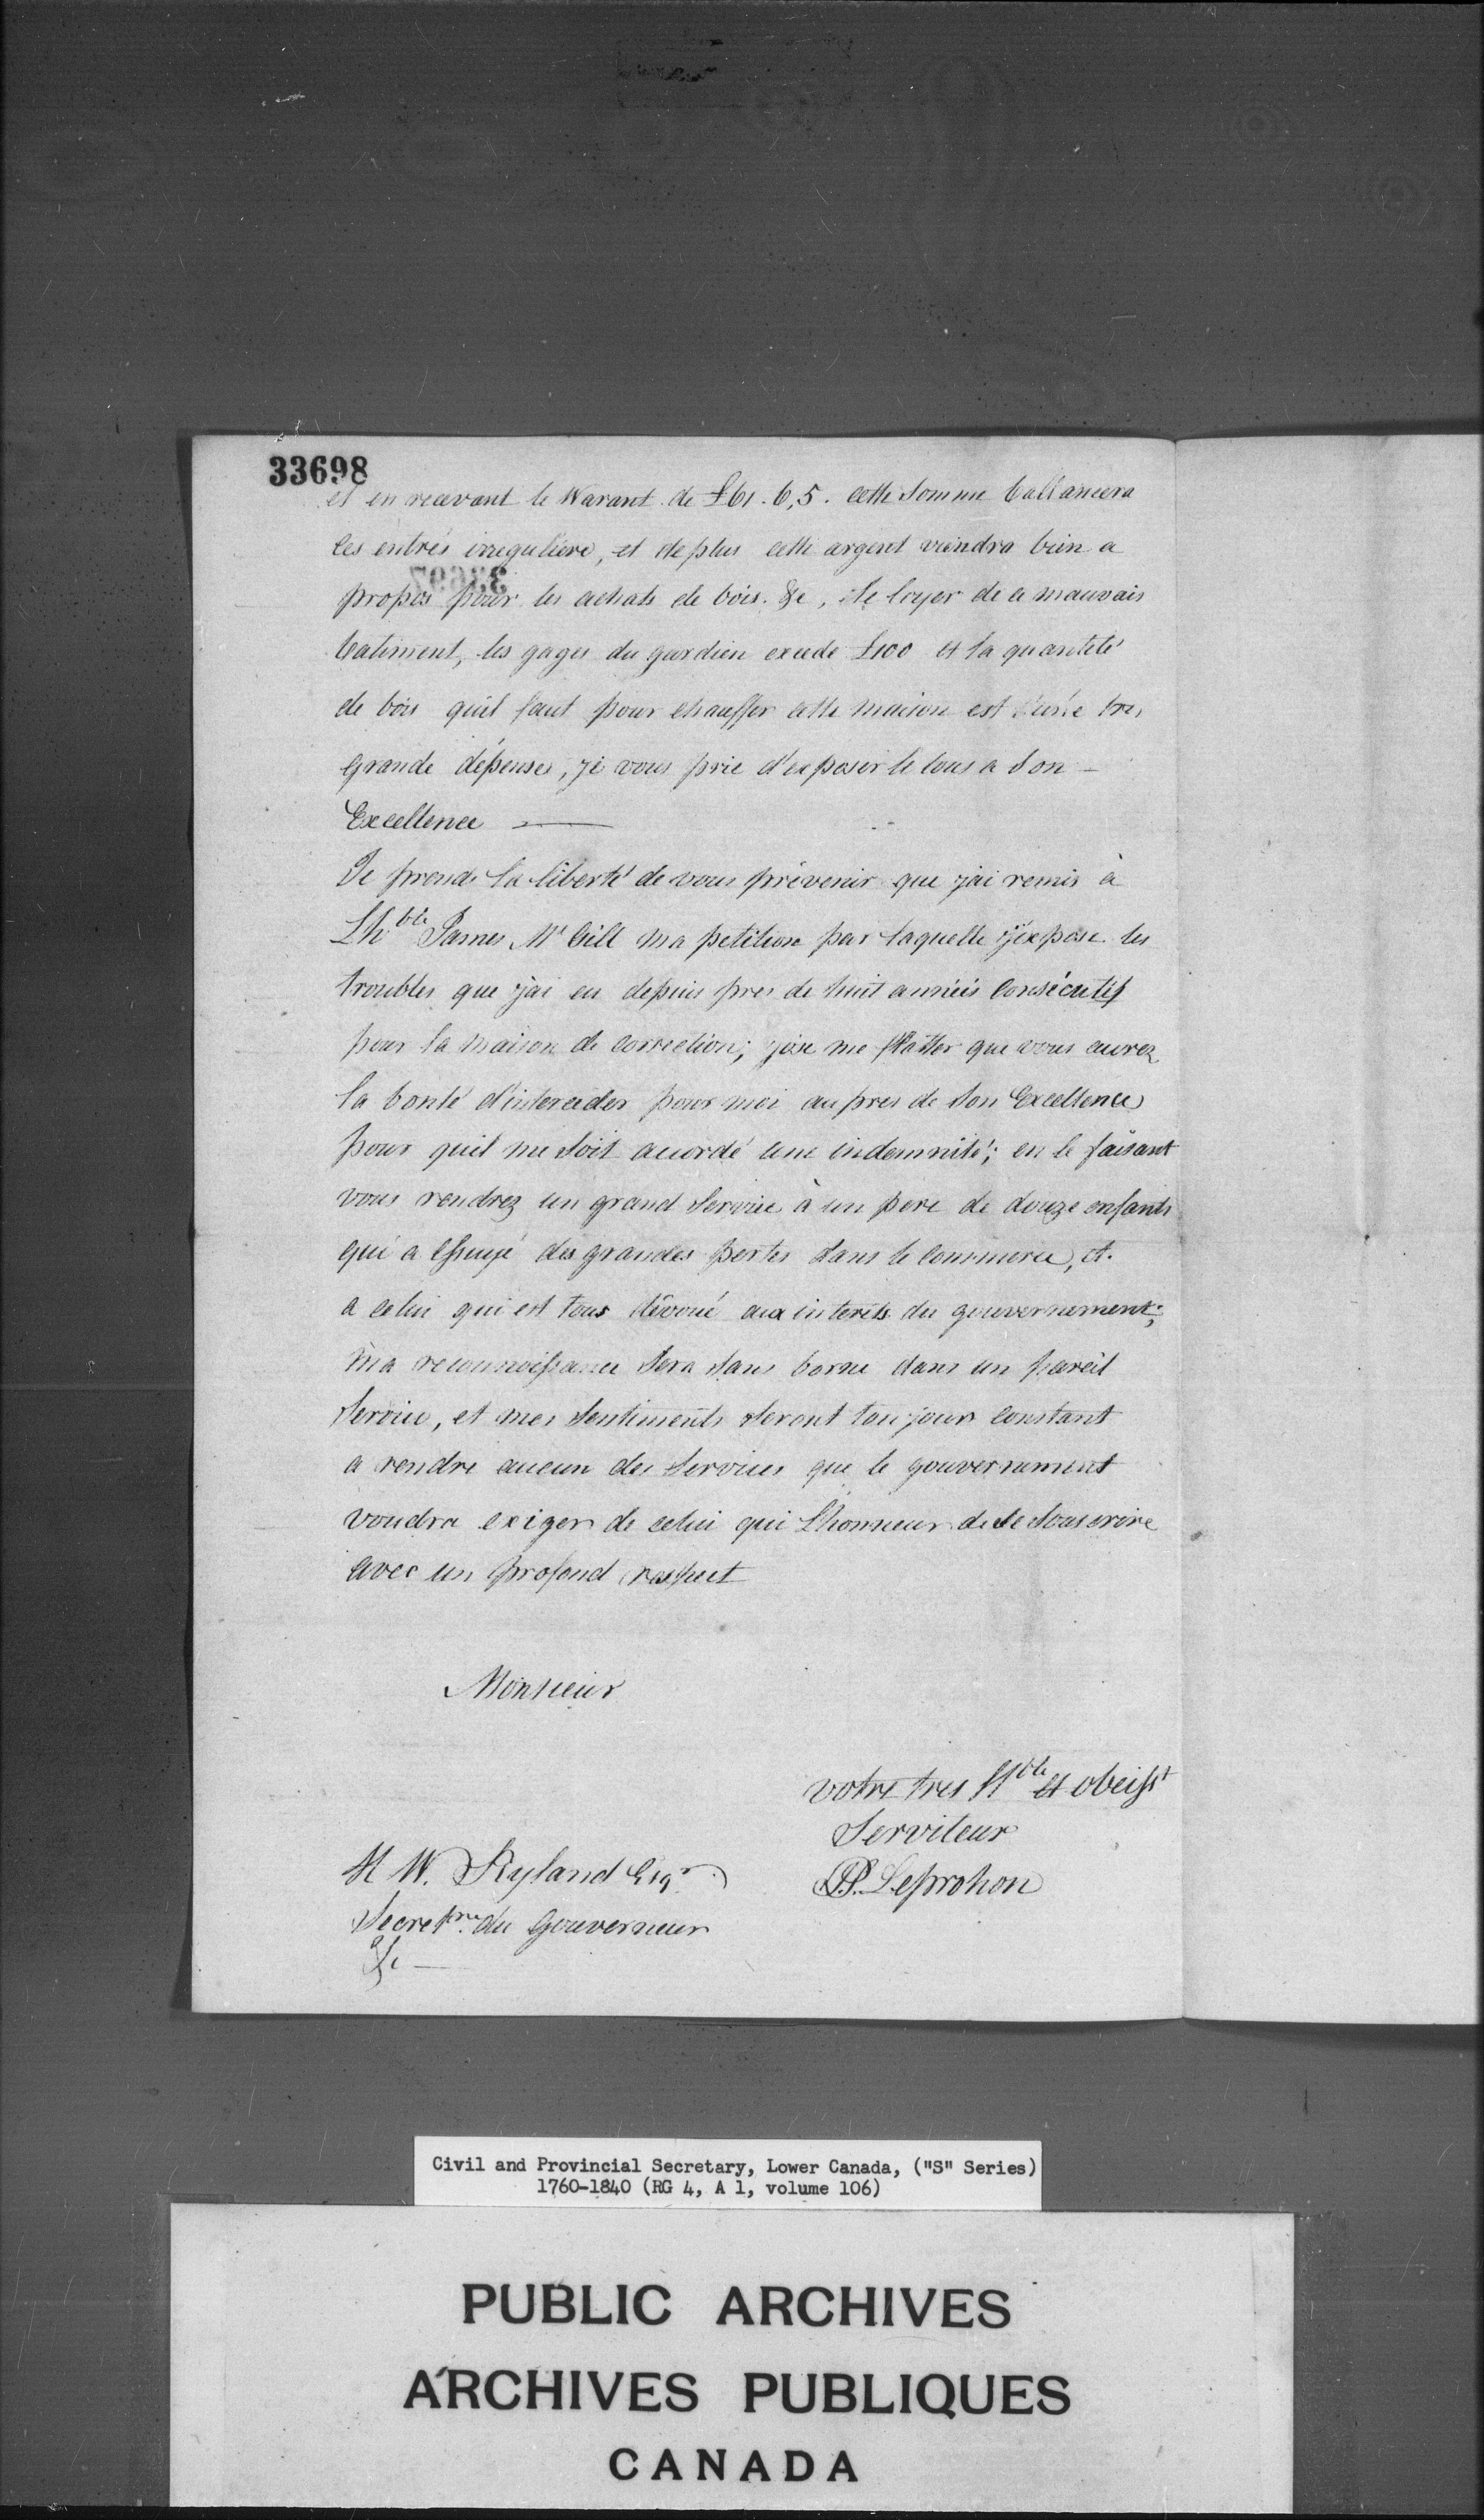 33698
et en recevant le Warant de £61.6,5. cette Somme ballancera
les entrés irreguliere, et deplus cette argent viendra bien a
propos pour les achats de bois. &c, Le loyer de ce mauvais
batiment, les gages du gardien excede £100 et la quantité
de bois quil faut pour chauffer cette maison est d'une tres
grande dépenses, je vous prie d'exposer le tous a Son —
Excellence —
Je prends la liberté de vous prévenir que j'ai remis à
Lhble James McGill ma petition par laquelle j'expose les
troubles que j'ai eu depuis pres de huit années Consécutif
pour la Maison de Correction; j'ose me flatter que vous aurez
la bonté d'interceder pour moi aupres de Son Excellence
pour quil me Soit accordé une indemnité; en le faisant
vous rendrez un grand Service à un pere de douze enfants
qui a essuyé des grandes pertes dans le Commerce, et
a celui qui est tous dévoué aux interets du gouvernement;
Ma reconnoissance Sera Sans borne dans un pareil
Service, et mes Sentiments Seront toujours Constant
a rendre aucun des Services que le gouvernement
voudra exiger de celui qui Lhonneur de Se Souscrire
avec un profond respect
Monsieur
votre tres Hble et obeisst
Serviteur
H W. Ryland Esqr
Leprohon
Secretre du Gouverneur
&c —
Civil and Provincial Secretary, Lower Canada, ("S" Series)
1760-1840 (RG 4, A 1, volume 106)
PUBLIC ARCHIVES
ARCHIVES PUBLIQUES
CANADA